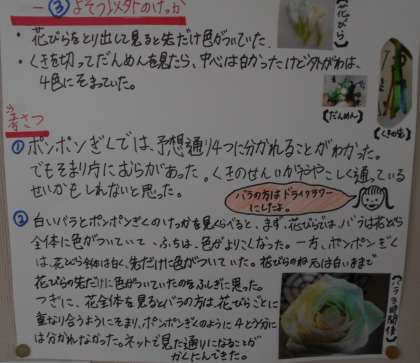 一③よそう以外のけっか
・花びらをとり出して見ると先だけ色がついていた.
・くきを切ってだんめんを見たら、中心は白かったけど外がわは、
4色にそまっていた。
花びら
だんめん
くきの先
考さつ
①ポンポンぎくでは、予想通り4つに分かれることがわかった。
でもそまり方にむらがあった。くきのせんいがややこしく通っている
せいかもしれないと思った。
バラの方はドライフラワー
にしたよ。
②白いバラとポンポンぎくのけっかを見くらべると、まず、花びらでは、バラは花びら
全体に色がついていて、ふちは、色がよりこくなった。一方、ポンポンぎく
は、花びら全体は白く、先だけに色がついていた。花びらのね元は白いままで
花びらの先だけに色がついていたのをふしぎに思った。
つぎに、花全体を見るとバラの方は、花びらごとに
重なり合うようにそまり、ポンポンぎくのように4とう分に
は分かれなかった。ネットで見た通りになることが
かくにんできた。